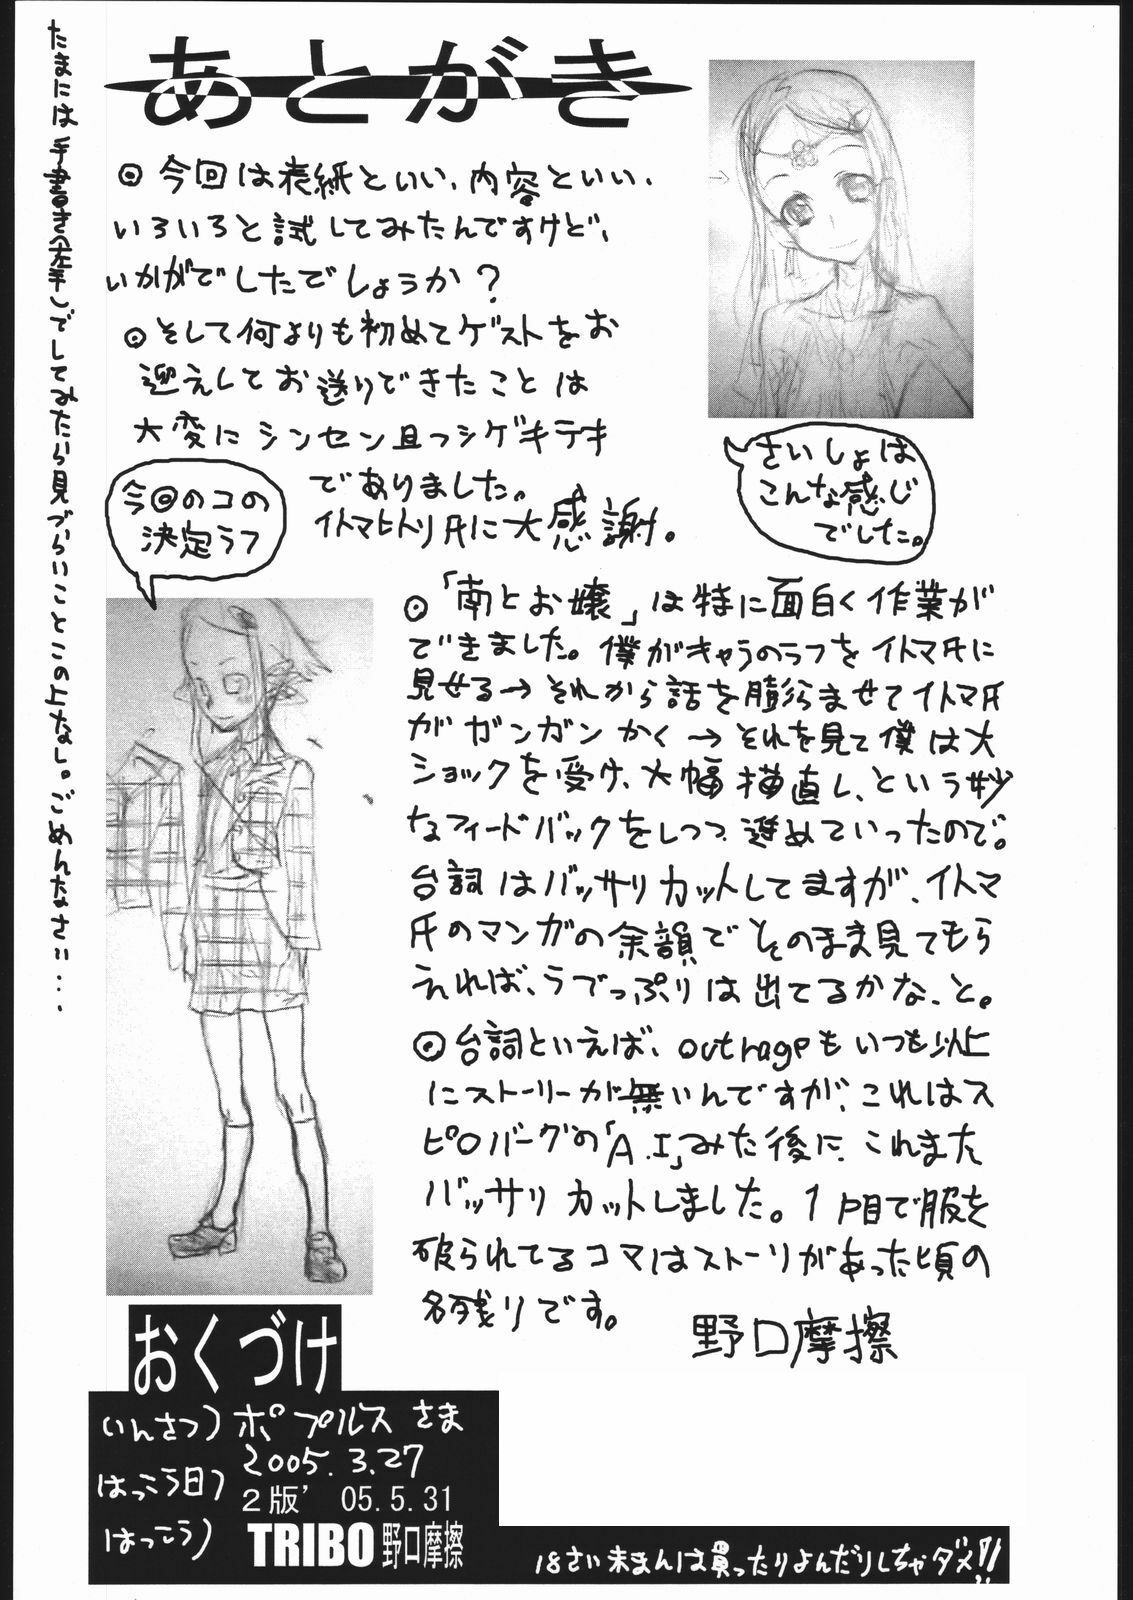 たまには手書き(左手)でしてみたら見づらいことこの上なし。ごめんなさい...
あとがき
◎今回は表紙といい、内容といい、
いろいろと試してみたんですけど、
いかがでしたでしょうか?
◎そして何よりも初めてゲストをお
迎えしてお送りできたことは
大変にシンセン且つシゲキテキ
でありました。
イトマヒトリ氏に大感謝。
さいしょは
こんな感じ
でした。
今回のコの
決定ラフ
◎「南とお嬢」は特に面白く作業が
できました。僕がキャラのラフをイトマ氏に
見せる→それから話を膨らませてイトマ氏
がガンガンかく→それを見て僕は大
ショックを受け、大幅描直し、という妙
なフィードバックをしつつ進めていったので。
台詞はバッサリカットしてますが、イトマ
氏のマンガの余韻でそのまま見てもら
えれば、うでっぷりは出てるかな、と。
◎台詞といえば、outrageもいつも以上
にストーリーが無いんですが、これはス
ピルバーグの「A.I」みた後に、これまた
バッサリカットしました。1P目で服を
破られてるコマはストーリがあった頃の
名残りです。
野口摩擦
おくづけ
いんさつ)ポプルスさま
はっこう日)2005.3.27
2版' 05.5.31
はっこう)TRIBO野口摩擦
18さい未まんは買ったりよんだりしちゃダメ!!